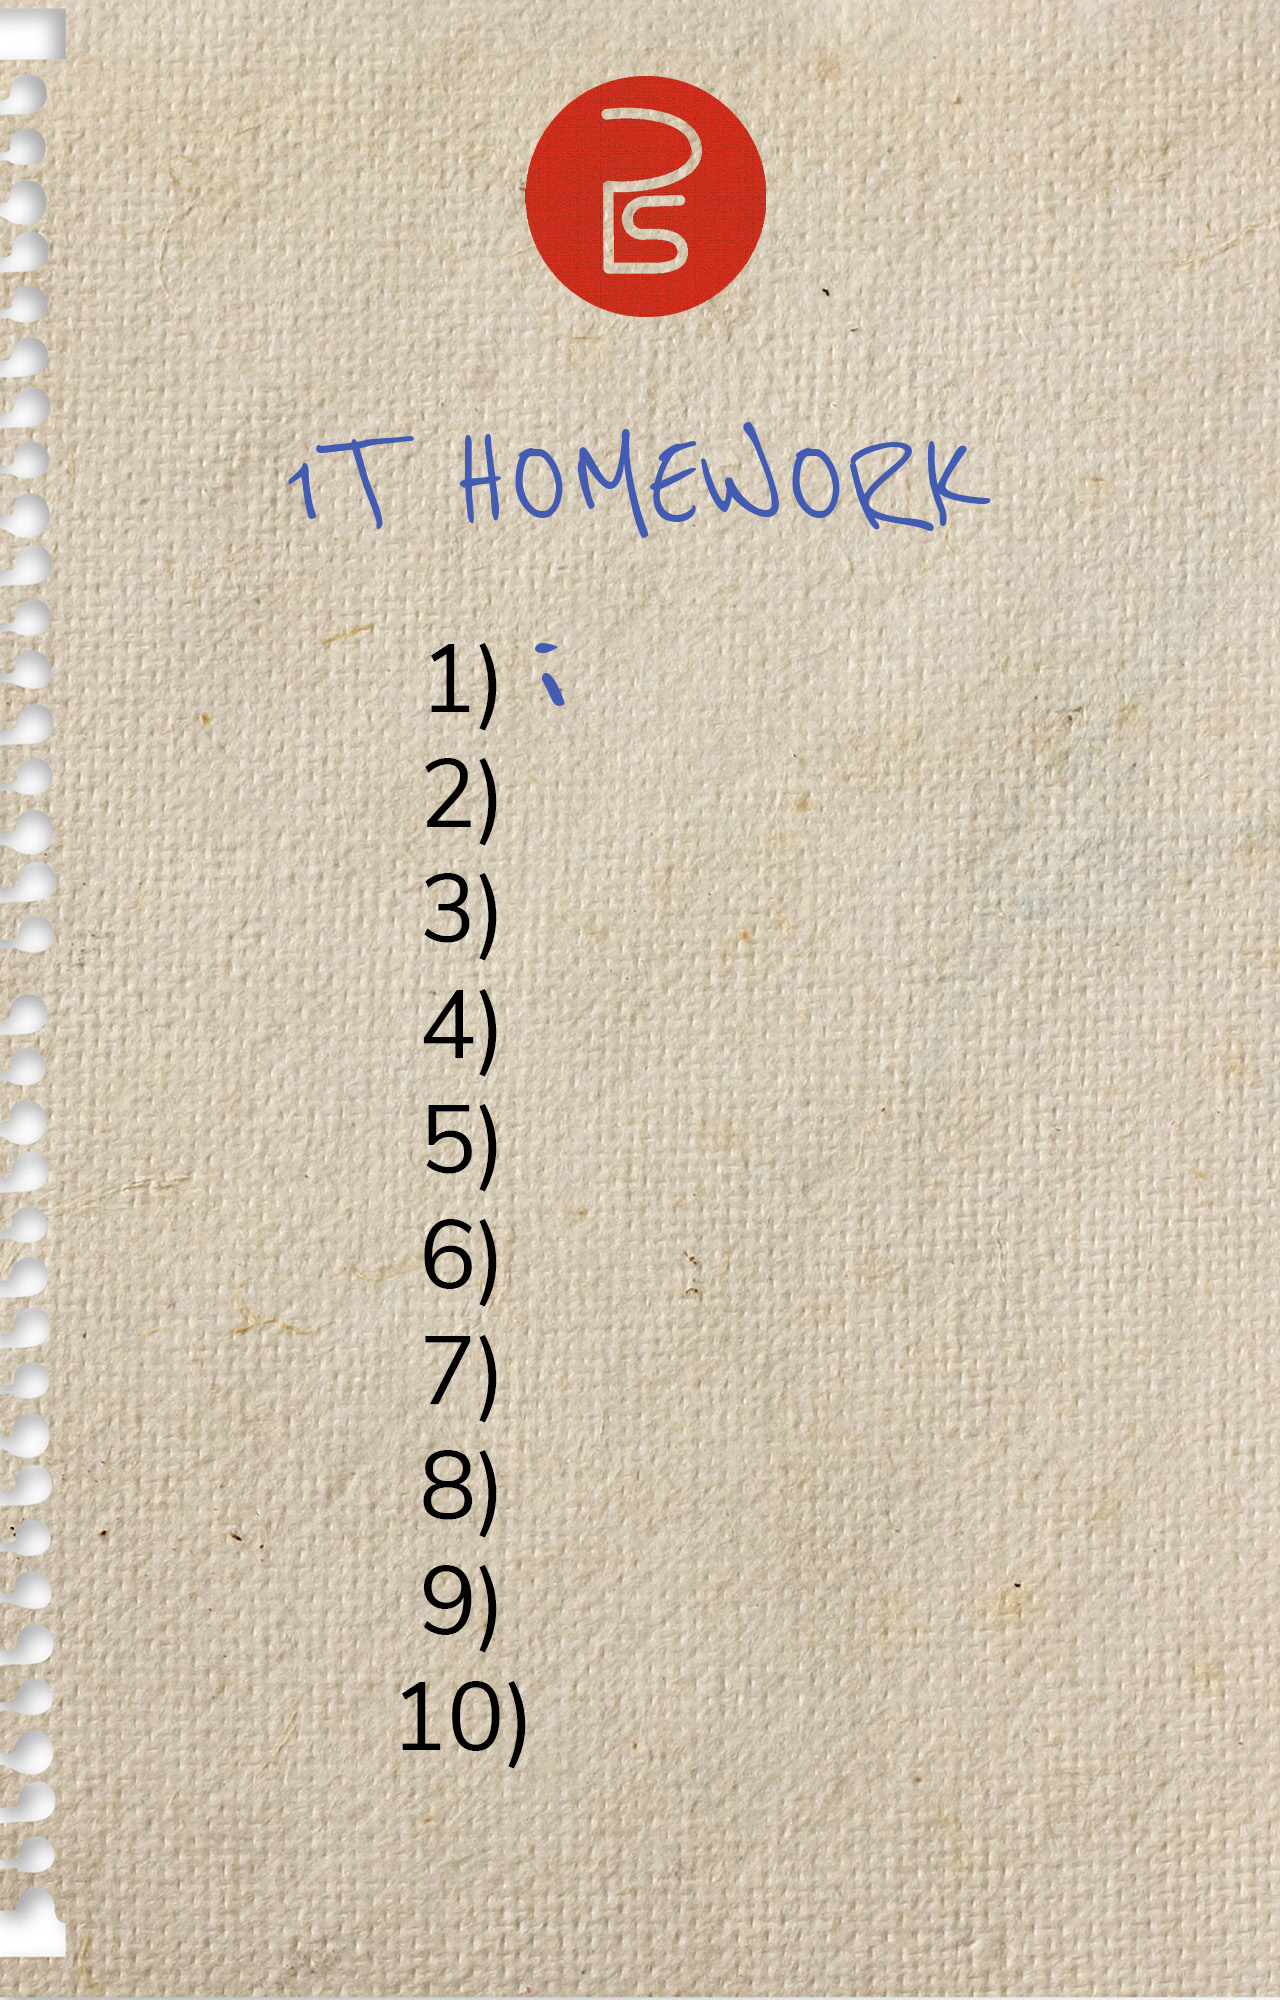 IT HOMEWORK
1) i
2)
3)
4)
5)
6)
7)
8)
9)
10)